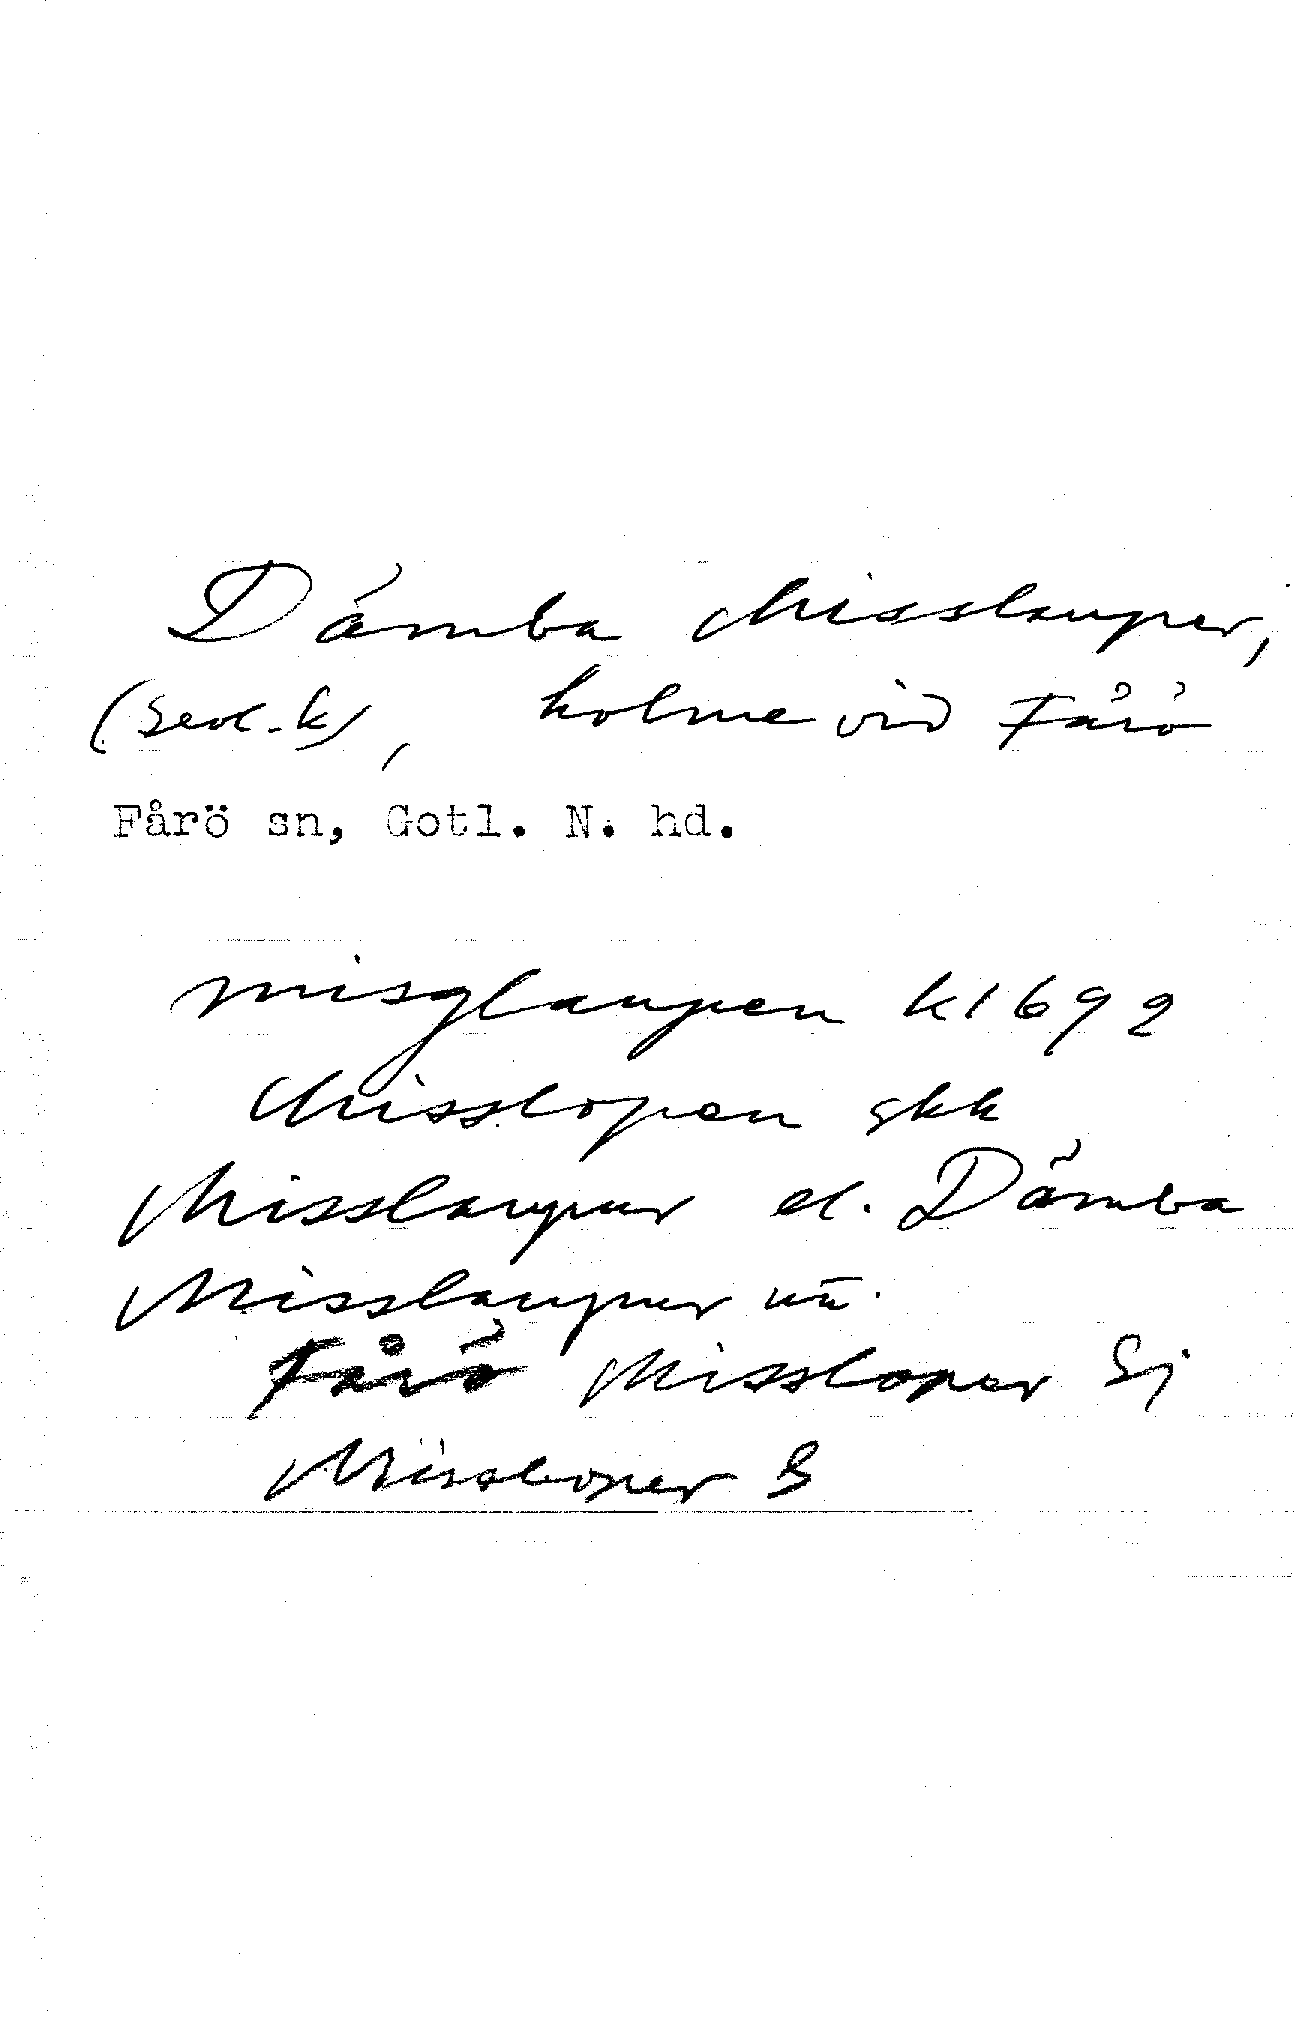 Dämba Misslauper,
(sevl.k), holme vid Fårö
Fårö sn, Gotl. N. hd.
misglaupen k1692
Misslopen gkk
Misslaupur el. Dämba
Misslaupur uū.
Fårö Missloper Sj
Missloper S